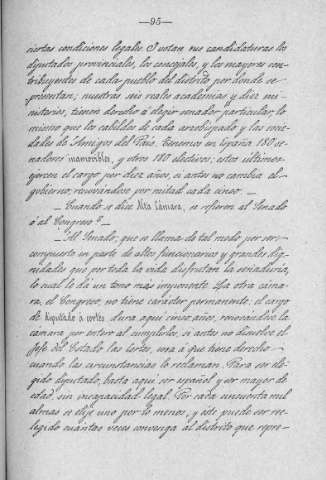 —95—
ciertas condiciones legales. Votan sus candidaturas los
diputados provinciales, los concejales, y los mayores con-
tribuyentes de cada pueblo del distrito por donde se
presentan; nuestras seis reales academias y diez uni-
versitarios, tienen derecho á elegir senador particular, lo
mismo que los cabildos de cada arzobispado y las socie-
dades de Amigos del País. Tenemos en España 180 se-
nadores inamovibles, y otros 180 electivos; estos últimos
ejercen el cargo por diez años, si antes no cambia el
gobierno, renovándose por mitad cada cinco.—
—Cuando se dice Alta Cámara, se refieren al Senado
ó al Congreso?—
—Al Senado, que se llama de tal modo por ser
compuesto en parte de altos funcionarios y grandes dig-
nidades que por toda la vida disfrutan la senaduría,
lo cual le dá un tono más imponente. La otra cáma-
ra, el Congreso, no tiene carácter permanente; el cargo
de diputado á cortes dura aquí cinco años, renovándose la
cámara por entero al cumplirlos, si antes no disuelve el
Jefe del Estado las Cortes, cosa á que tiene derecho
cuando las circunstancias lo reclaman. Para ser ele-
gido diputado, basta aquí ser español y ser mayor de
edad, sin incapacidad legal. Por cada cincuenta mil
almas se elije uno por lo menos, y éste puede ser ree-
legido cuántas veces convenga al distrito que repre-